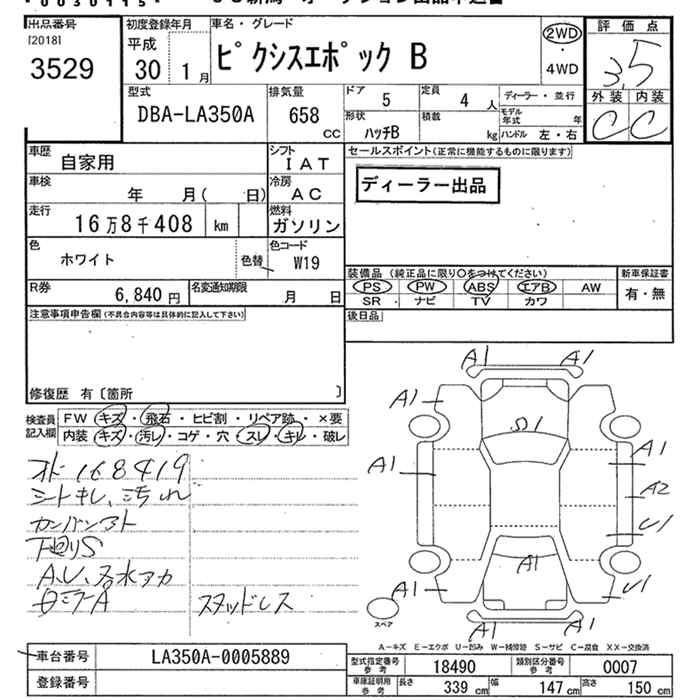 *0030115*
出品番号 初度登録年月 車名・グレード 評価点
[2018] 平成
3529 30 1月 ピクシスエポック B 2WD・4WD 3.5
型式 排気量 ドア 定員 ディーラー・並行 外装 内装
DBA-LA350A 658 CC 5 4人 C C
形状 積載 モデル年式 年
ハッチB kg ハンドル 左・右
車歴 シフト セールスポイント(正常に機能するものに限ります)
自家用 IAT
車検 冷房 ディーラー出品
年 月( 日) AC
走行 燃料
16万8千408 km ガソリン
色 色コード
ホワイト 色替 W19
装備品(純正品に限り○をつけてください) 新車保証書
R券 名変通知期限 PS PW ABS エアB AW 有・無
6,840円 月 日 SR ナビ TV カワ
注意事項申告欄(不具合内容等は具体的に記入して下さい) 後日品
修復歴 有〔箇所 〕
検査員記入欄 FW キズ・飛石・ヒビ割・リペア跡・×要
内装 キズ・汚レ・コゲ・穴・スレ・キレ・破レ
オド168419
シートキレ、汚れ
カンバンアト
下廻りS
A.U、水アカ
スタッドレス
A1 A1
A1
A1
A1
A2
U1
A1
A1
U1
A1 A1
スペア
A-キズ E-エクボ U-凹み W-補修跡 S-サビ C-腐食 XX-交換済
車台番号 LA350A-0005889 型式指定番号参考 18490 類別区分番号参考 0007
登録番号 車庫証明用参考 長さ 339cm 幅 147cm 高さ 150cm